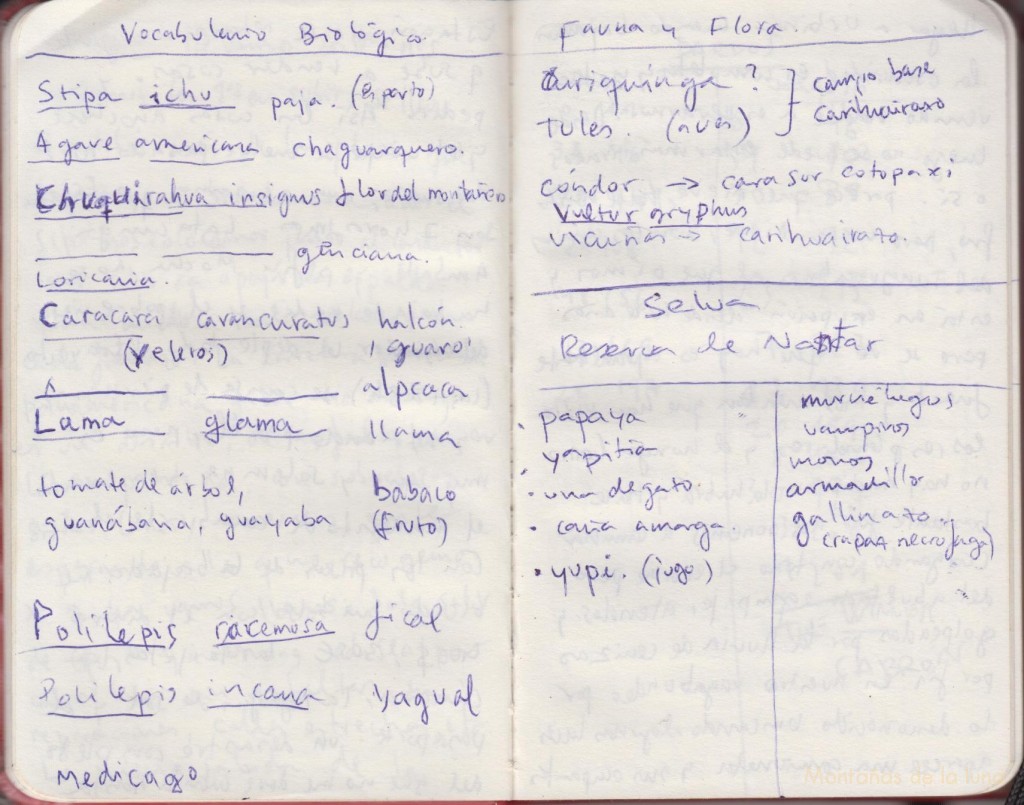 Vocabulario Biológico
Stipa ichu paja. (Esparto)
Agave americana chaguarquero.
Chuquirahua insignus flor del montañero
genciana.
Loricaria.
Caracara carancuratus halcón.
(Veleros) iguaró
A alpcaca
Lama glama llama
tomate de árbol, babaco
guanábana, guayaba (fruto)
Polilepis racemosa jical
Polilepis incana yagual
Medicago
Fauna y Flora.
Curiquinga ? campo base
tules. (aves) carihuairazo
cóndor → cara sur cotopaxi
Vultur gryphus
vicuñas → carihuairazo
Selva
Reserva de Nantar
• papaya
yupitia
• una de gato.
• caña amarga
• yupi. (jugo)
murciélagos
vampiros
monos
armadillo
gallinazo
(rapaz necrofaga)
Montañas de la luna